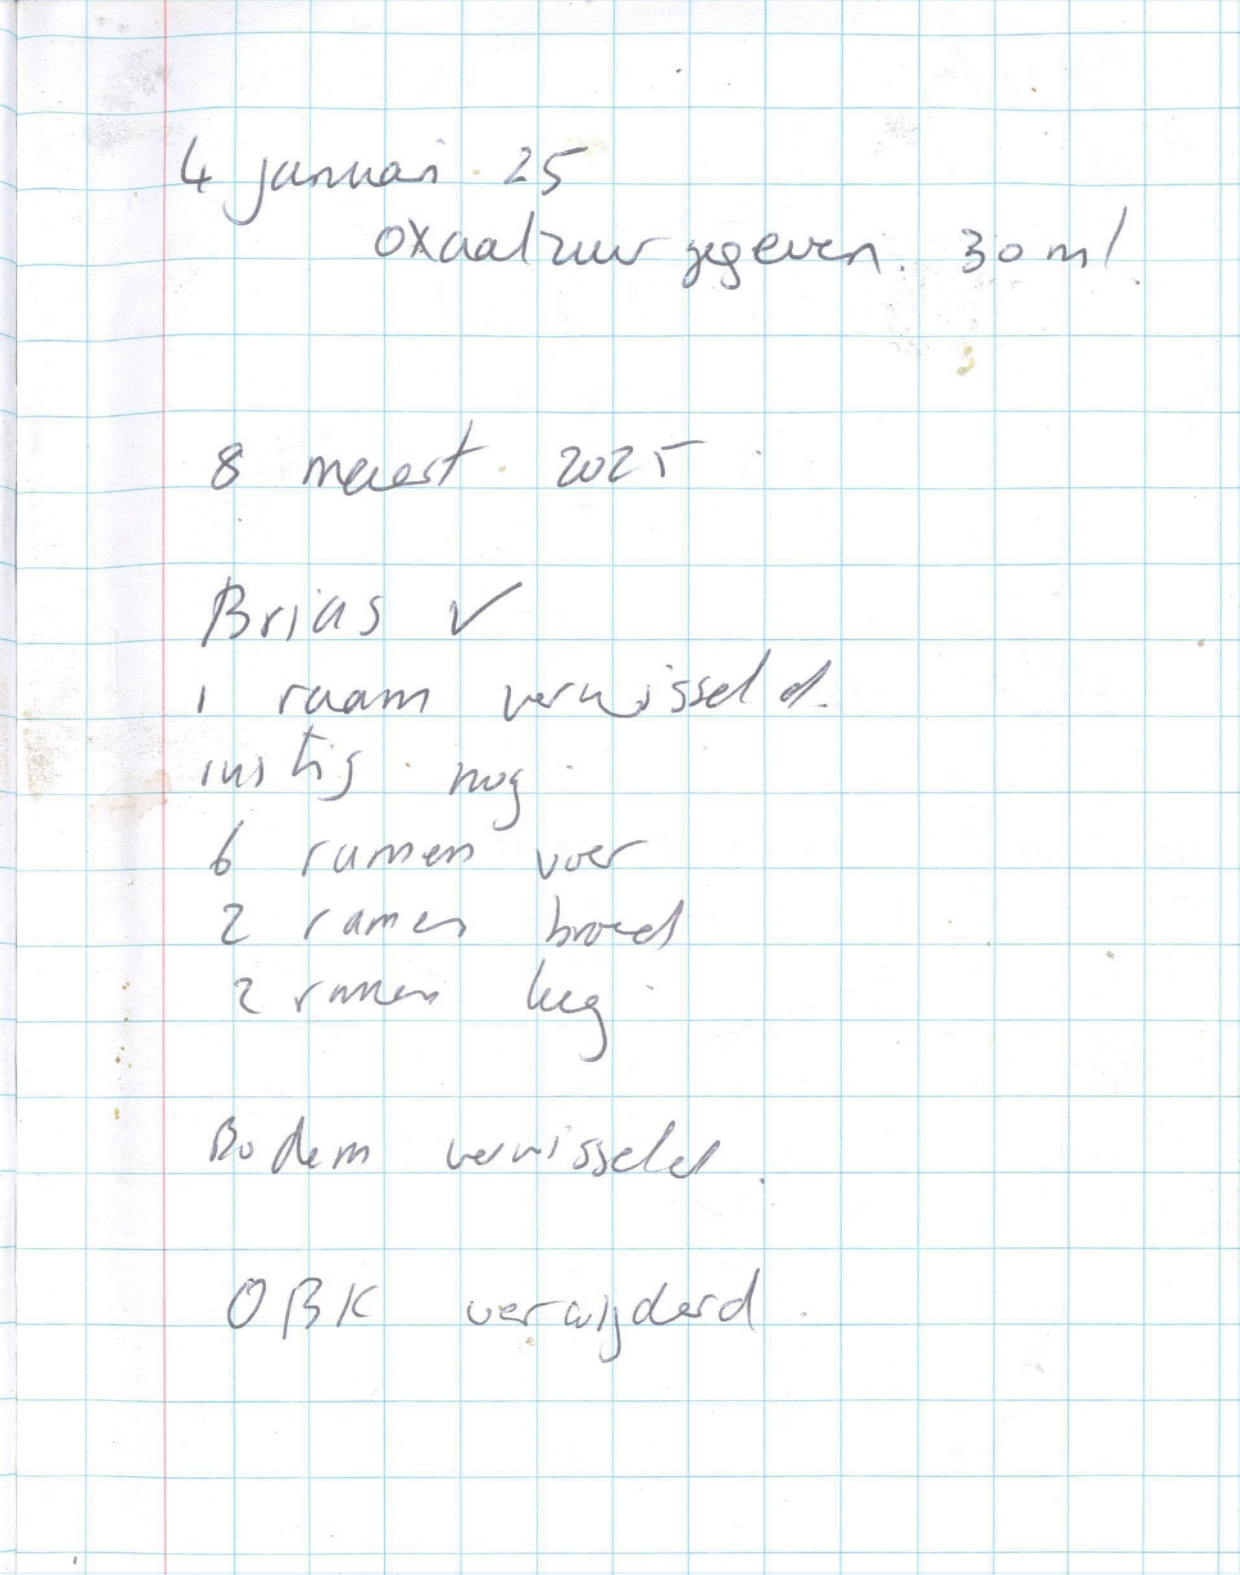 4 januari 25
oxaalzuur gegeven. 30 ml.
8 maart 2025
Brias ✓
1 raam verwisseld.
rustig nog
6 ramen voer
2 ramen broed
2 ramen leeg
Bodem verwisseld.
OBK verwijderd.